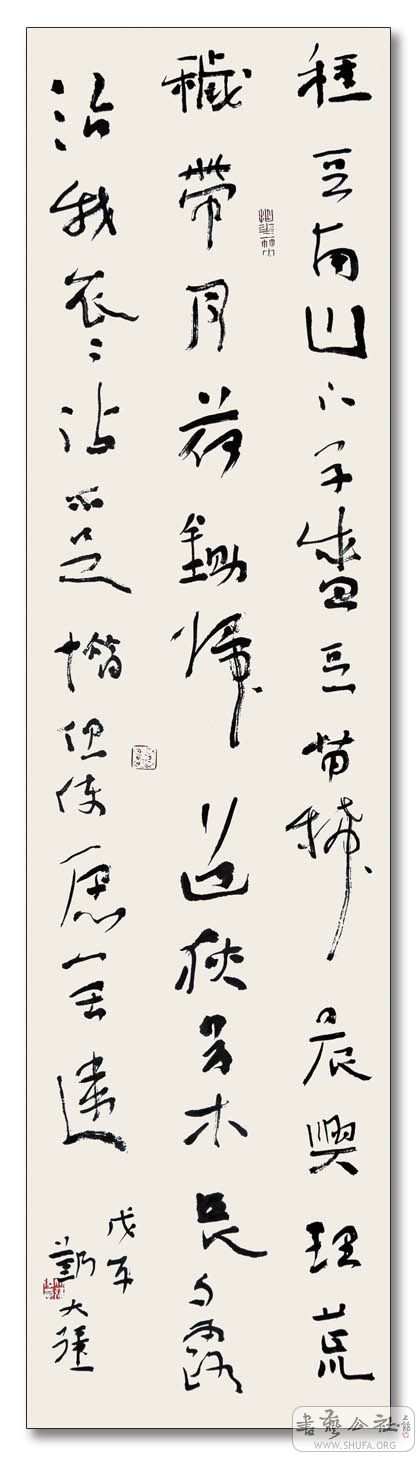 種豆南山下草盛豆苗稀晨興理荒
穢帶月荷鋤歸道狹草木長夕露
沾我衣〻沾不足惜但使願無違
書藝公社
WWW.SHUFA.ORG